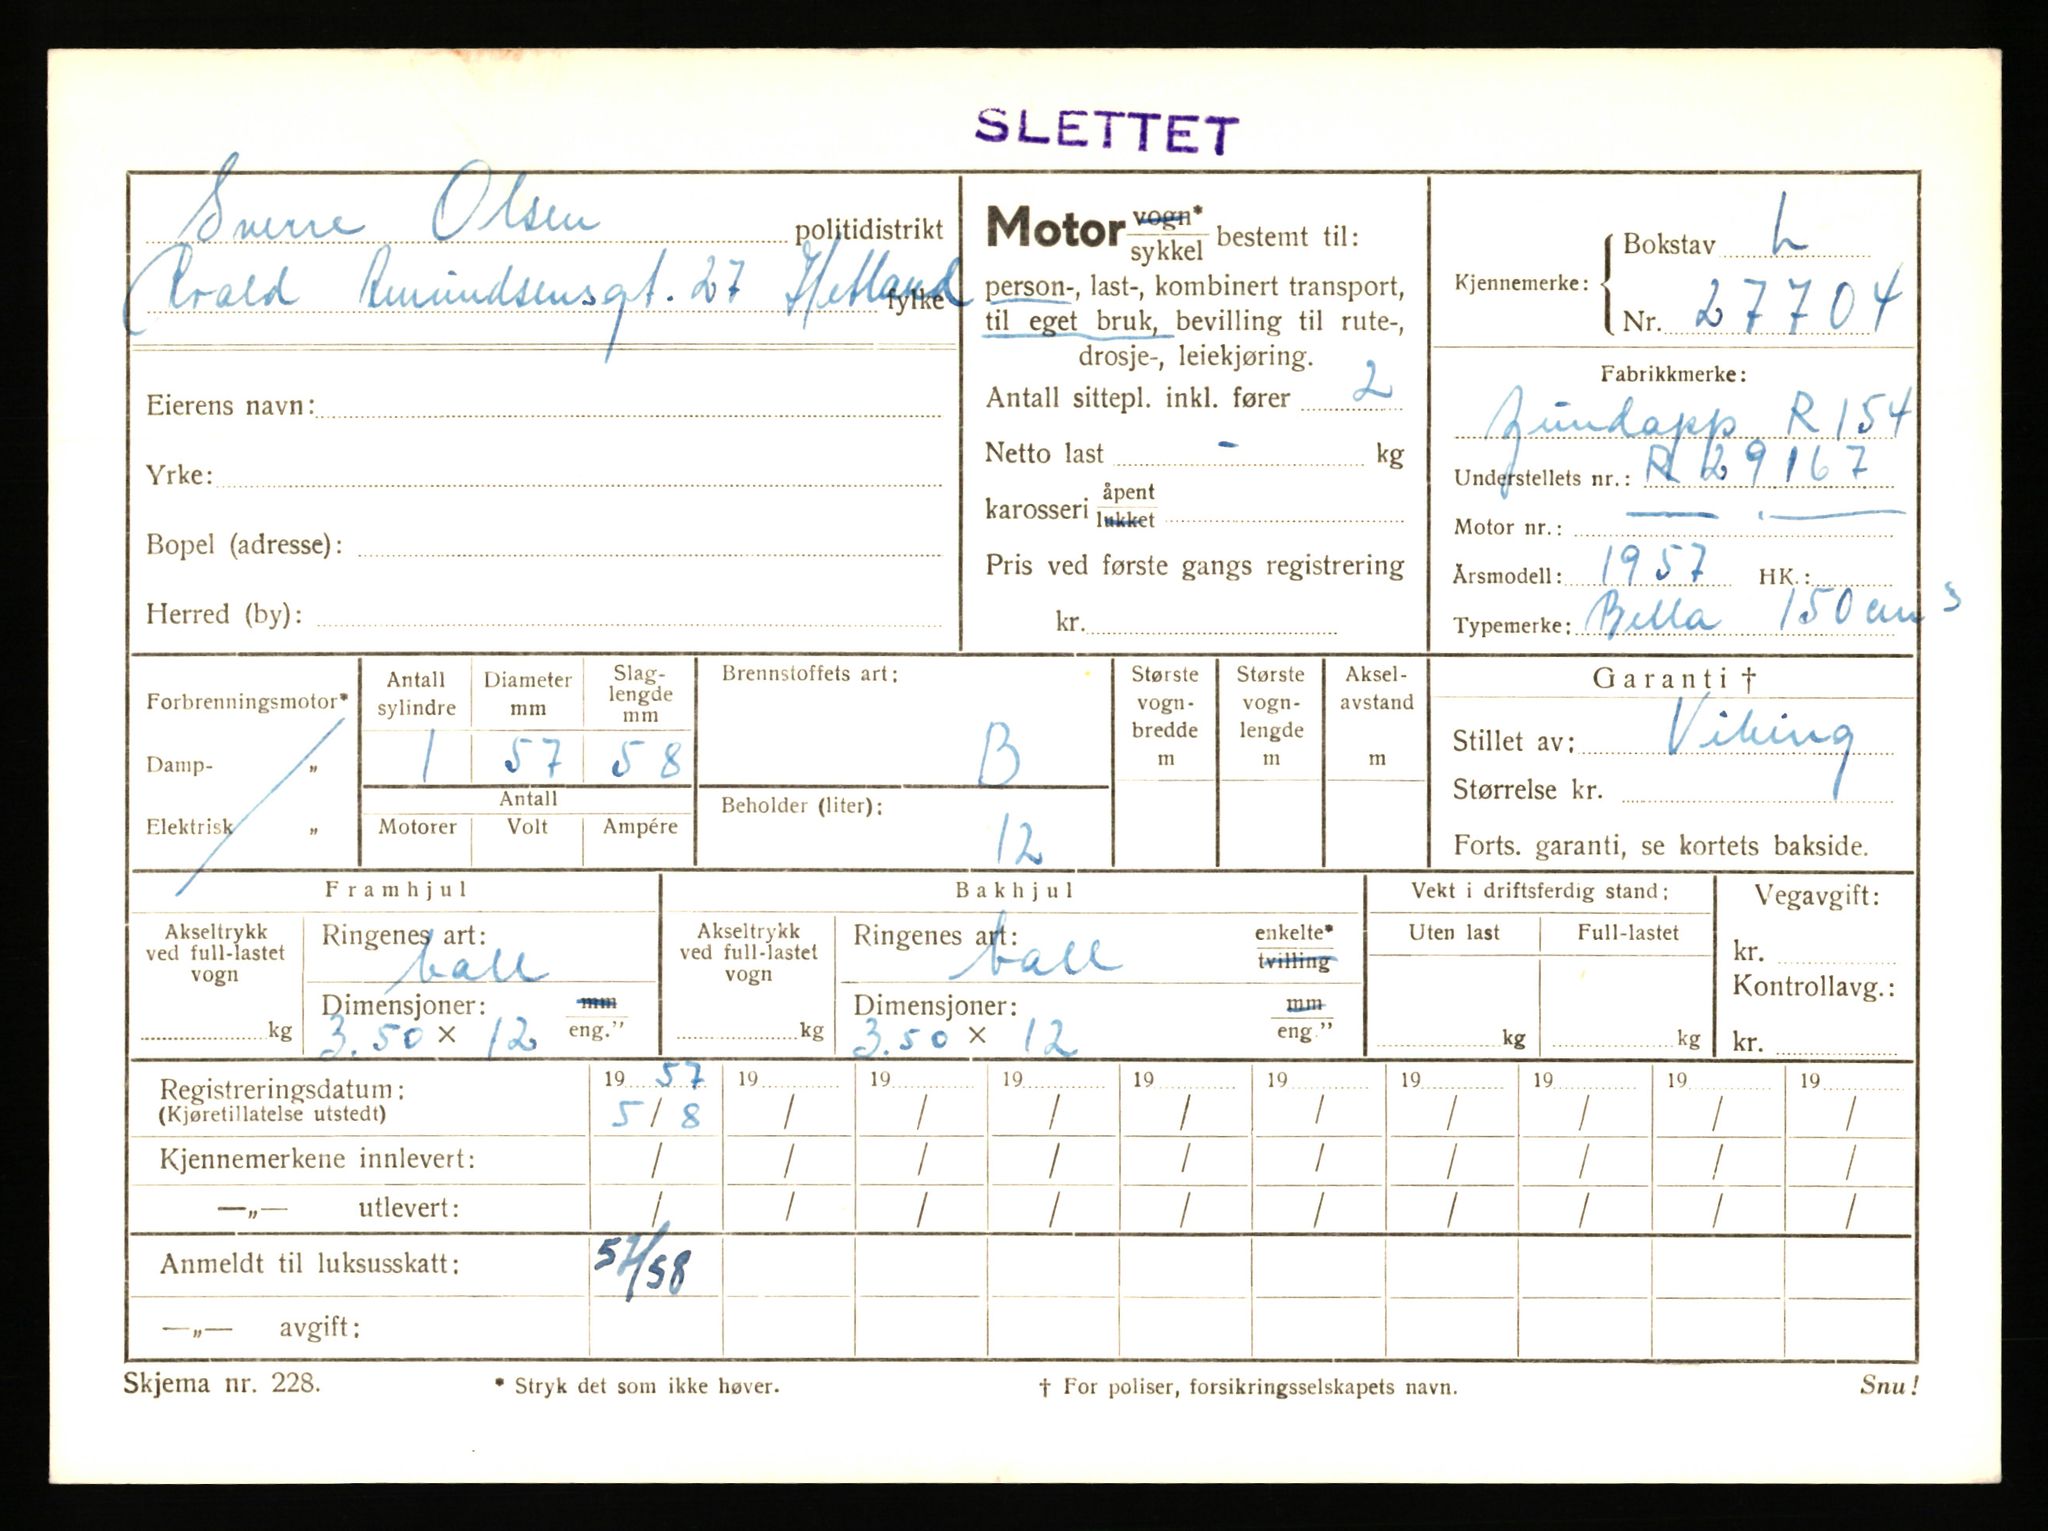 SLETTET
Sverre Olsen politidistrikt
Roald Amundsensgt. 27 Hetland fylke
Eierens navn:
Yrke:
Bopel (adresse):
Herred (by):
Motor vogn* sykkel bestemt til:
person-, last-, kombinert transport,
til eget bruk, bevilling til rute-,
drosje-, leiekjøring.
Antall sittepl. inkl. fører 2
Netto last - kg
karosseri åpent lukket
Pris ved første gangs registrering
kr.
Kjennemerke: Bokstav L
Nr. 27704
Fabrikkmerke:
Zündapp R 154
Understellets nr.: R 29167
Motor nr.:
Årsmodell: 1957 HK.:
Typemerke: Bella 150 cm3
Forbrenningsmotor*
Damp- „
Elektrisk „
Antall sylindre
Diameter mm
Slag-lengde mm
1 57 58
Antall
Motorer Volt Ampére
Brennstoffets art:
B
Beholder (liter):
12
Største vogn-bredde m
Største vogn-lengde m
Aksel-avstand m
Garanti †
Stillet av: Viking
Størrelse kr.
Forts. garanti, se kortets bakside.
Framhjul
Akseltrykk ved full-lastet vogn
kg
Ringenes art:
ball
Dimensjoner: mm
3.50 × 12 eng.”
Bakhjul
Akseltrykk ved full-lastet vogn
kg
Ringenes art: enkelte* tvilling
ball
Dimensjoner: mm
3.50 × 12 eng.”
Vekt i driftsferdig stand:
Uten last Full-lastet
kg kg
Vegavgift:
kr.
Kontrollavg.:
kr.
Registreringsdatum: 19 57 19 19 19 19 19 19 19 19 19
(Kjøretillatelse utstedt) 5/8 / / / / / / / / /
Kjennemerkene innlevert: / / / / / / / / / /
—„— utlevert: / / / / / / / / / /
Anmeldt til luksusskatt: 57/58
—„— avgift:
Skjema nr. 228. * Stryk det som ikke høver. † For poliser, forsikringsselskapets navn. Snu!